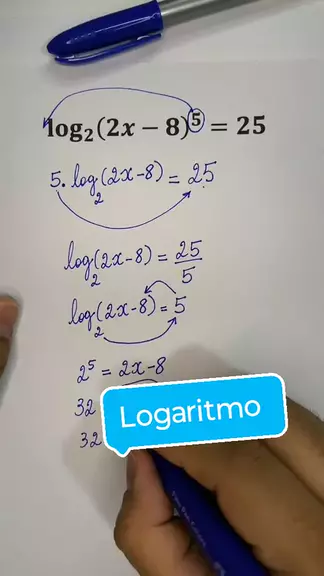 log₂(2x − 8)⁵ = 25
5. log₂(2x-8) = 25
log₂(2x-8) = 25/5
log₂(2x-8) = 5
2⁵ = 2x-8
32
32
Logaritmo